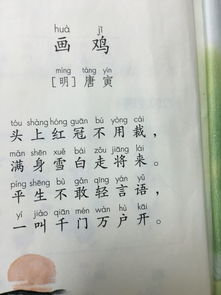 huà jī
画 鸡
míng táng yín
[明] 唐 寅
tóu shàng hóng guān bú yòng cái
头 上 红 冠 不 用 裁，
mǎn shēn xuě bái zǒu jiāng lái
满 身 雪 白 走 将 来。
píng shēng bù gǎn qīng yán yǔ
平 生 不 敢 轻 言 语，
yí jiào qiān mén wàn hù kāi
一 叫 千 门 万 户 开。